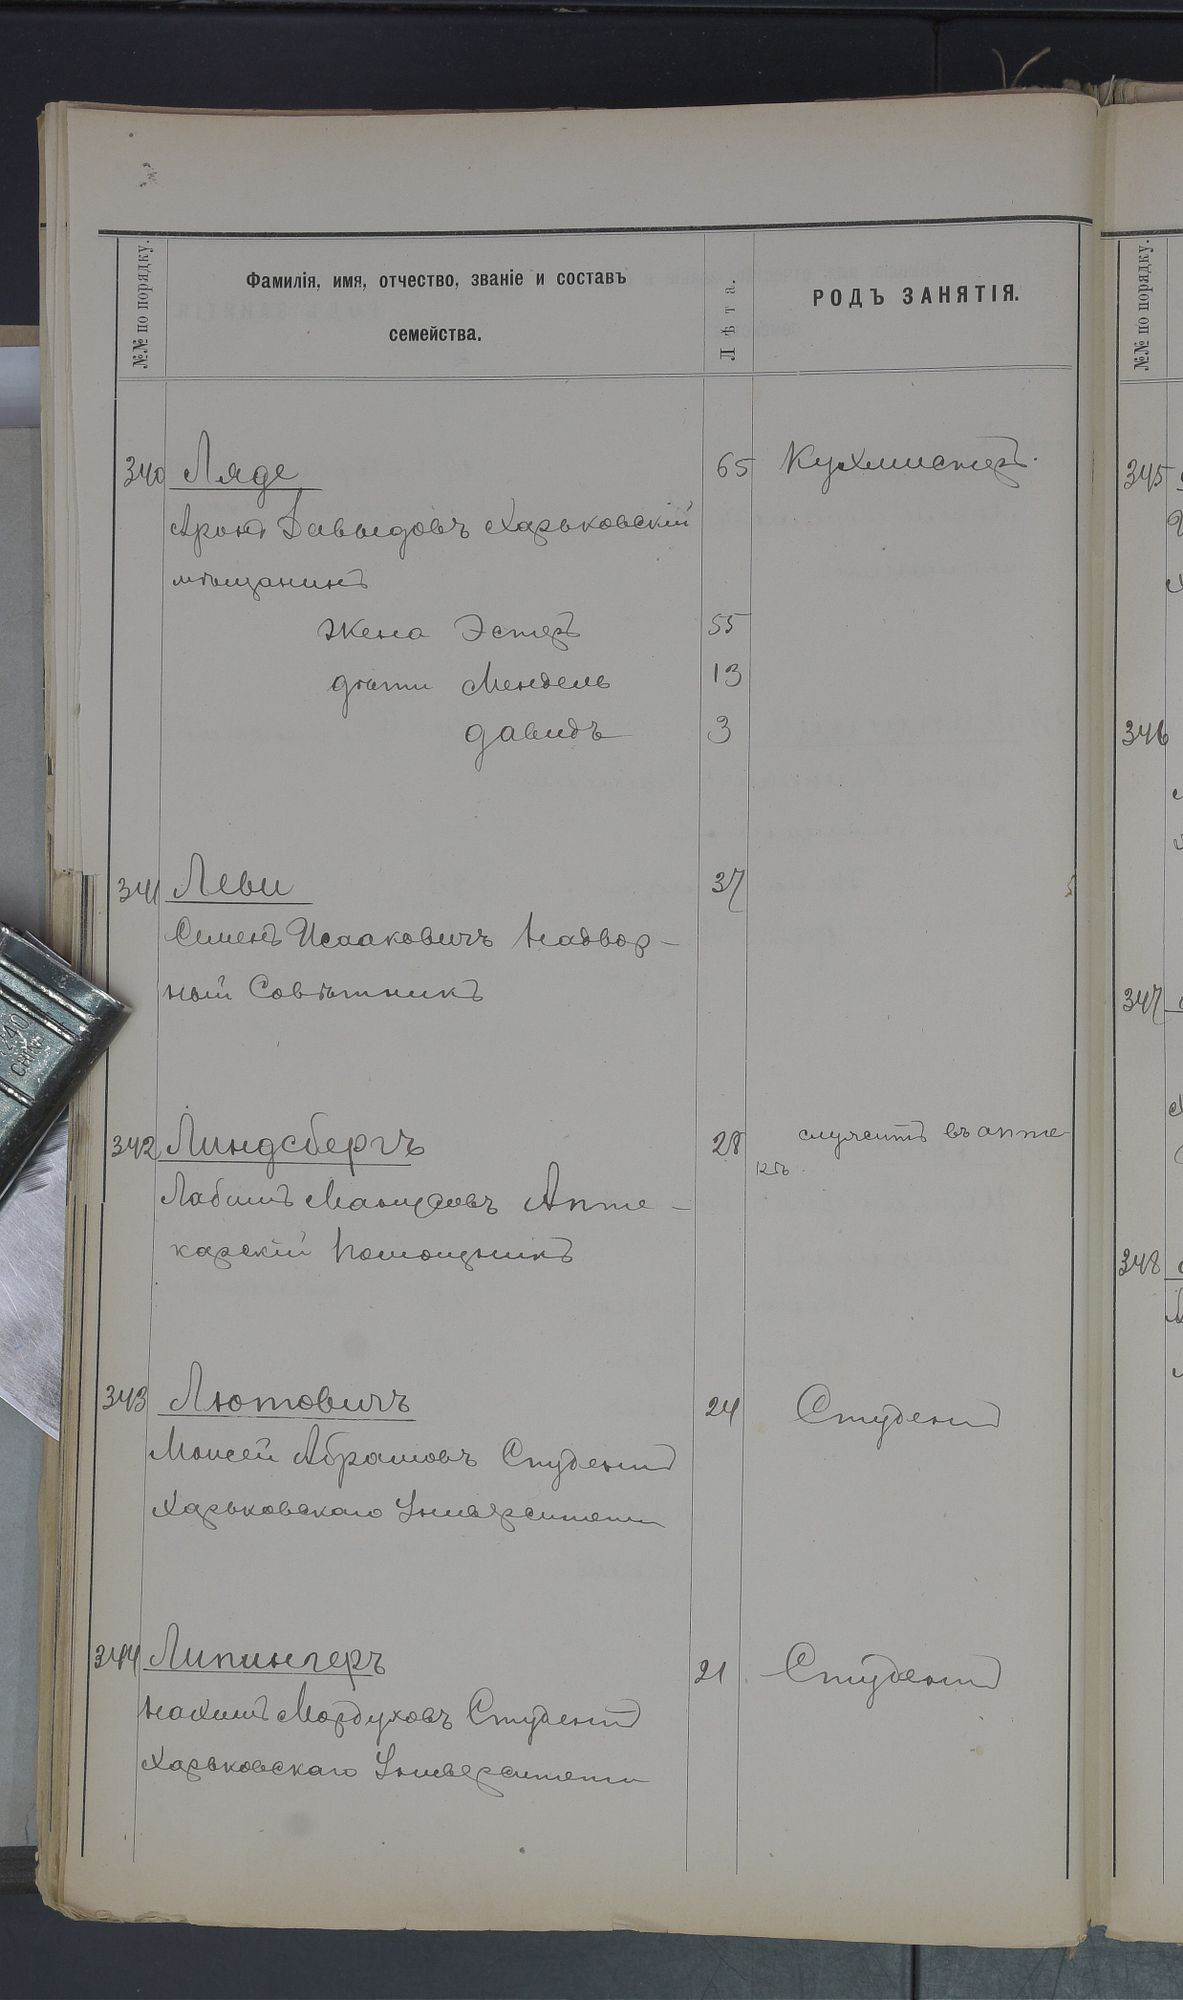 №№ по порядку.
Фамилія, имя, отчество, званіе и составъ
семейства.
Лѣта.
РОДЪ ЗАНЯТІЯ.
№№ по порядку.
340 Ляде 65 Кухмистеръ.
Аронъ Давыдовъ Харьковскій
мѣщанинъ
Жена Эстеръ 55
дѣти Мендель 13
Давидъ 3
341 Леви 37
Семенъ Исааковичъ Надвор-
ный Совѣтникъ
342 Линдсбергъ 28 служитъ въ апте
кѣ.
Апте-
карскій Помощникъ
343 Лютовичъ 24 Студентъ
Моисей Абрамовъ Студентъ
Харьковскаго Университета
344 Липингеръ 21 Студентъ
Нахимъ Мордуховъ Студентъ
Харьковскаго Университета
345
346
347
348
CHINA